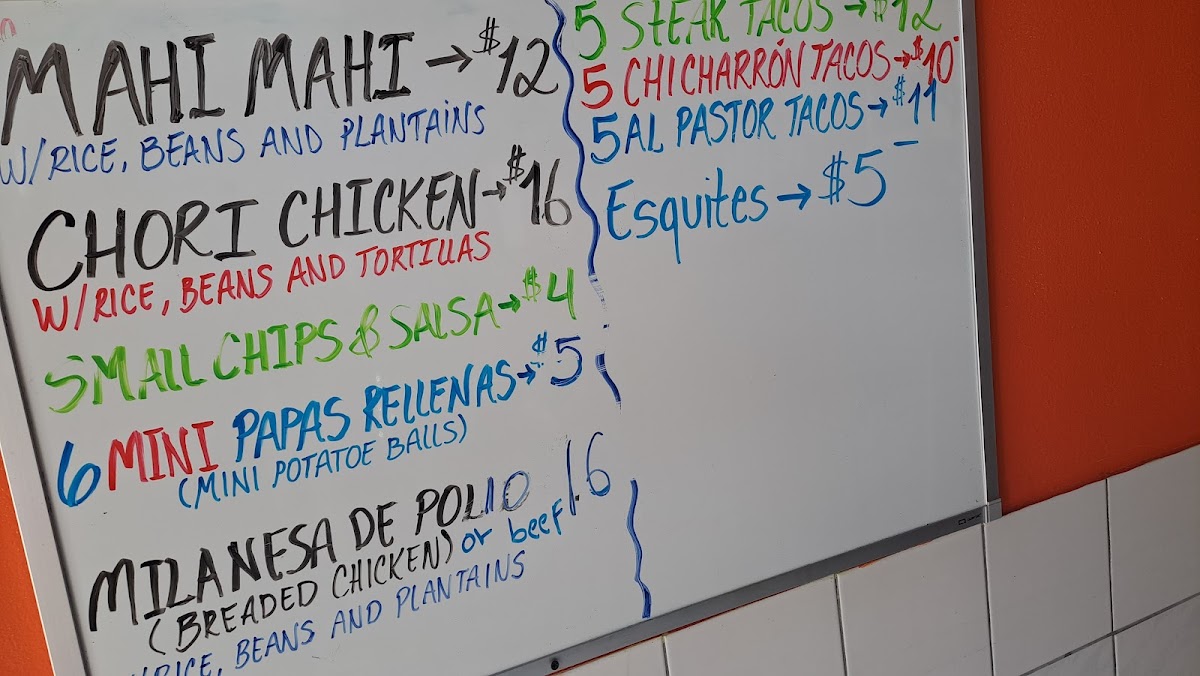 MAHI MAHI → $12
W/RICE, BEANS AND PLANTAINS
CHORI CHICKEN → $16
W/RICE, BEANS AND TORTILLAS
SMALL CHIPS & SALSA → $4
6 MINI PAPAS RELLENAS → $5
(MINI POTATOE BALLS)
MILANESA DE POLLO 16
(BREADED CHICKEN) or beef
W/RICE, BEANS AND PLANTAINS
5 STEAK TACOS → $12
5 CHICHARRÓN TACOS → $10
5 AL PASTOR TACOS → $11
Esquites → $5